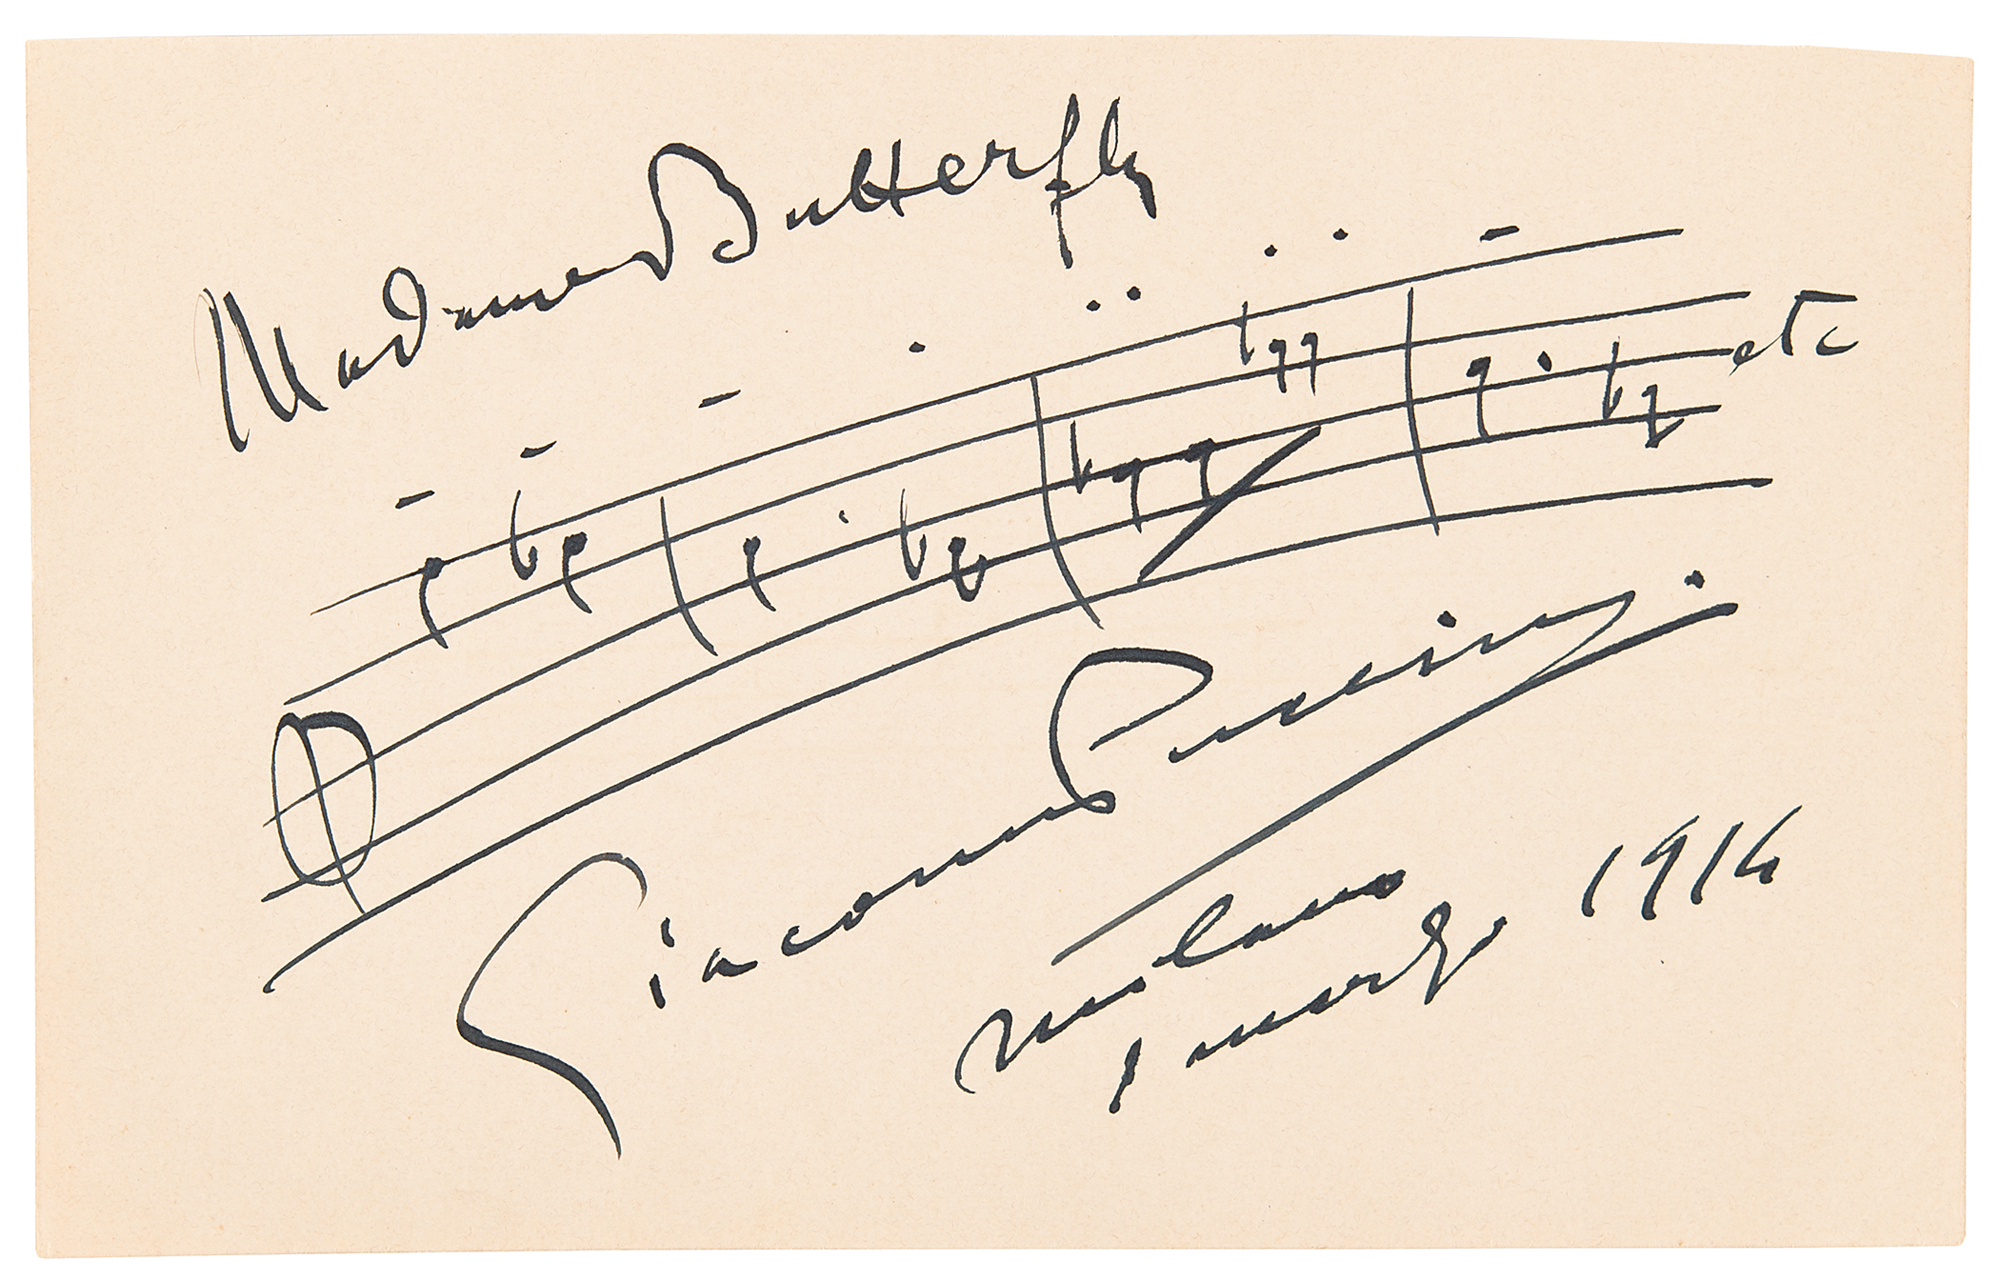 Madame Butterfly
etc
Giacomo Puccini
Milano
1 marzo 1914